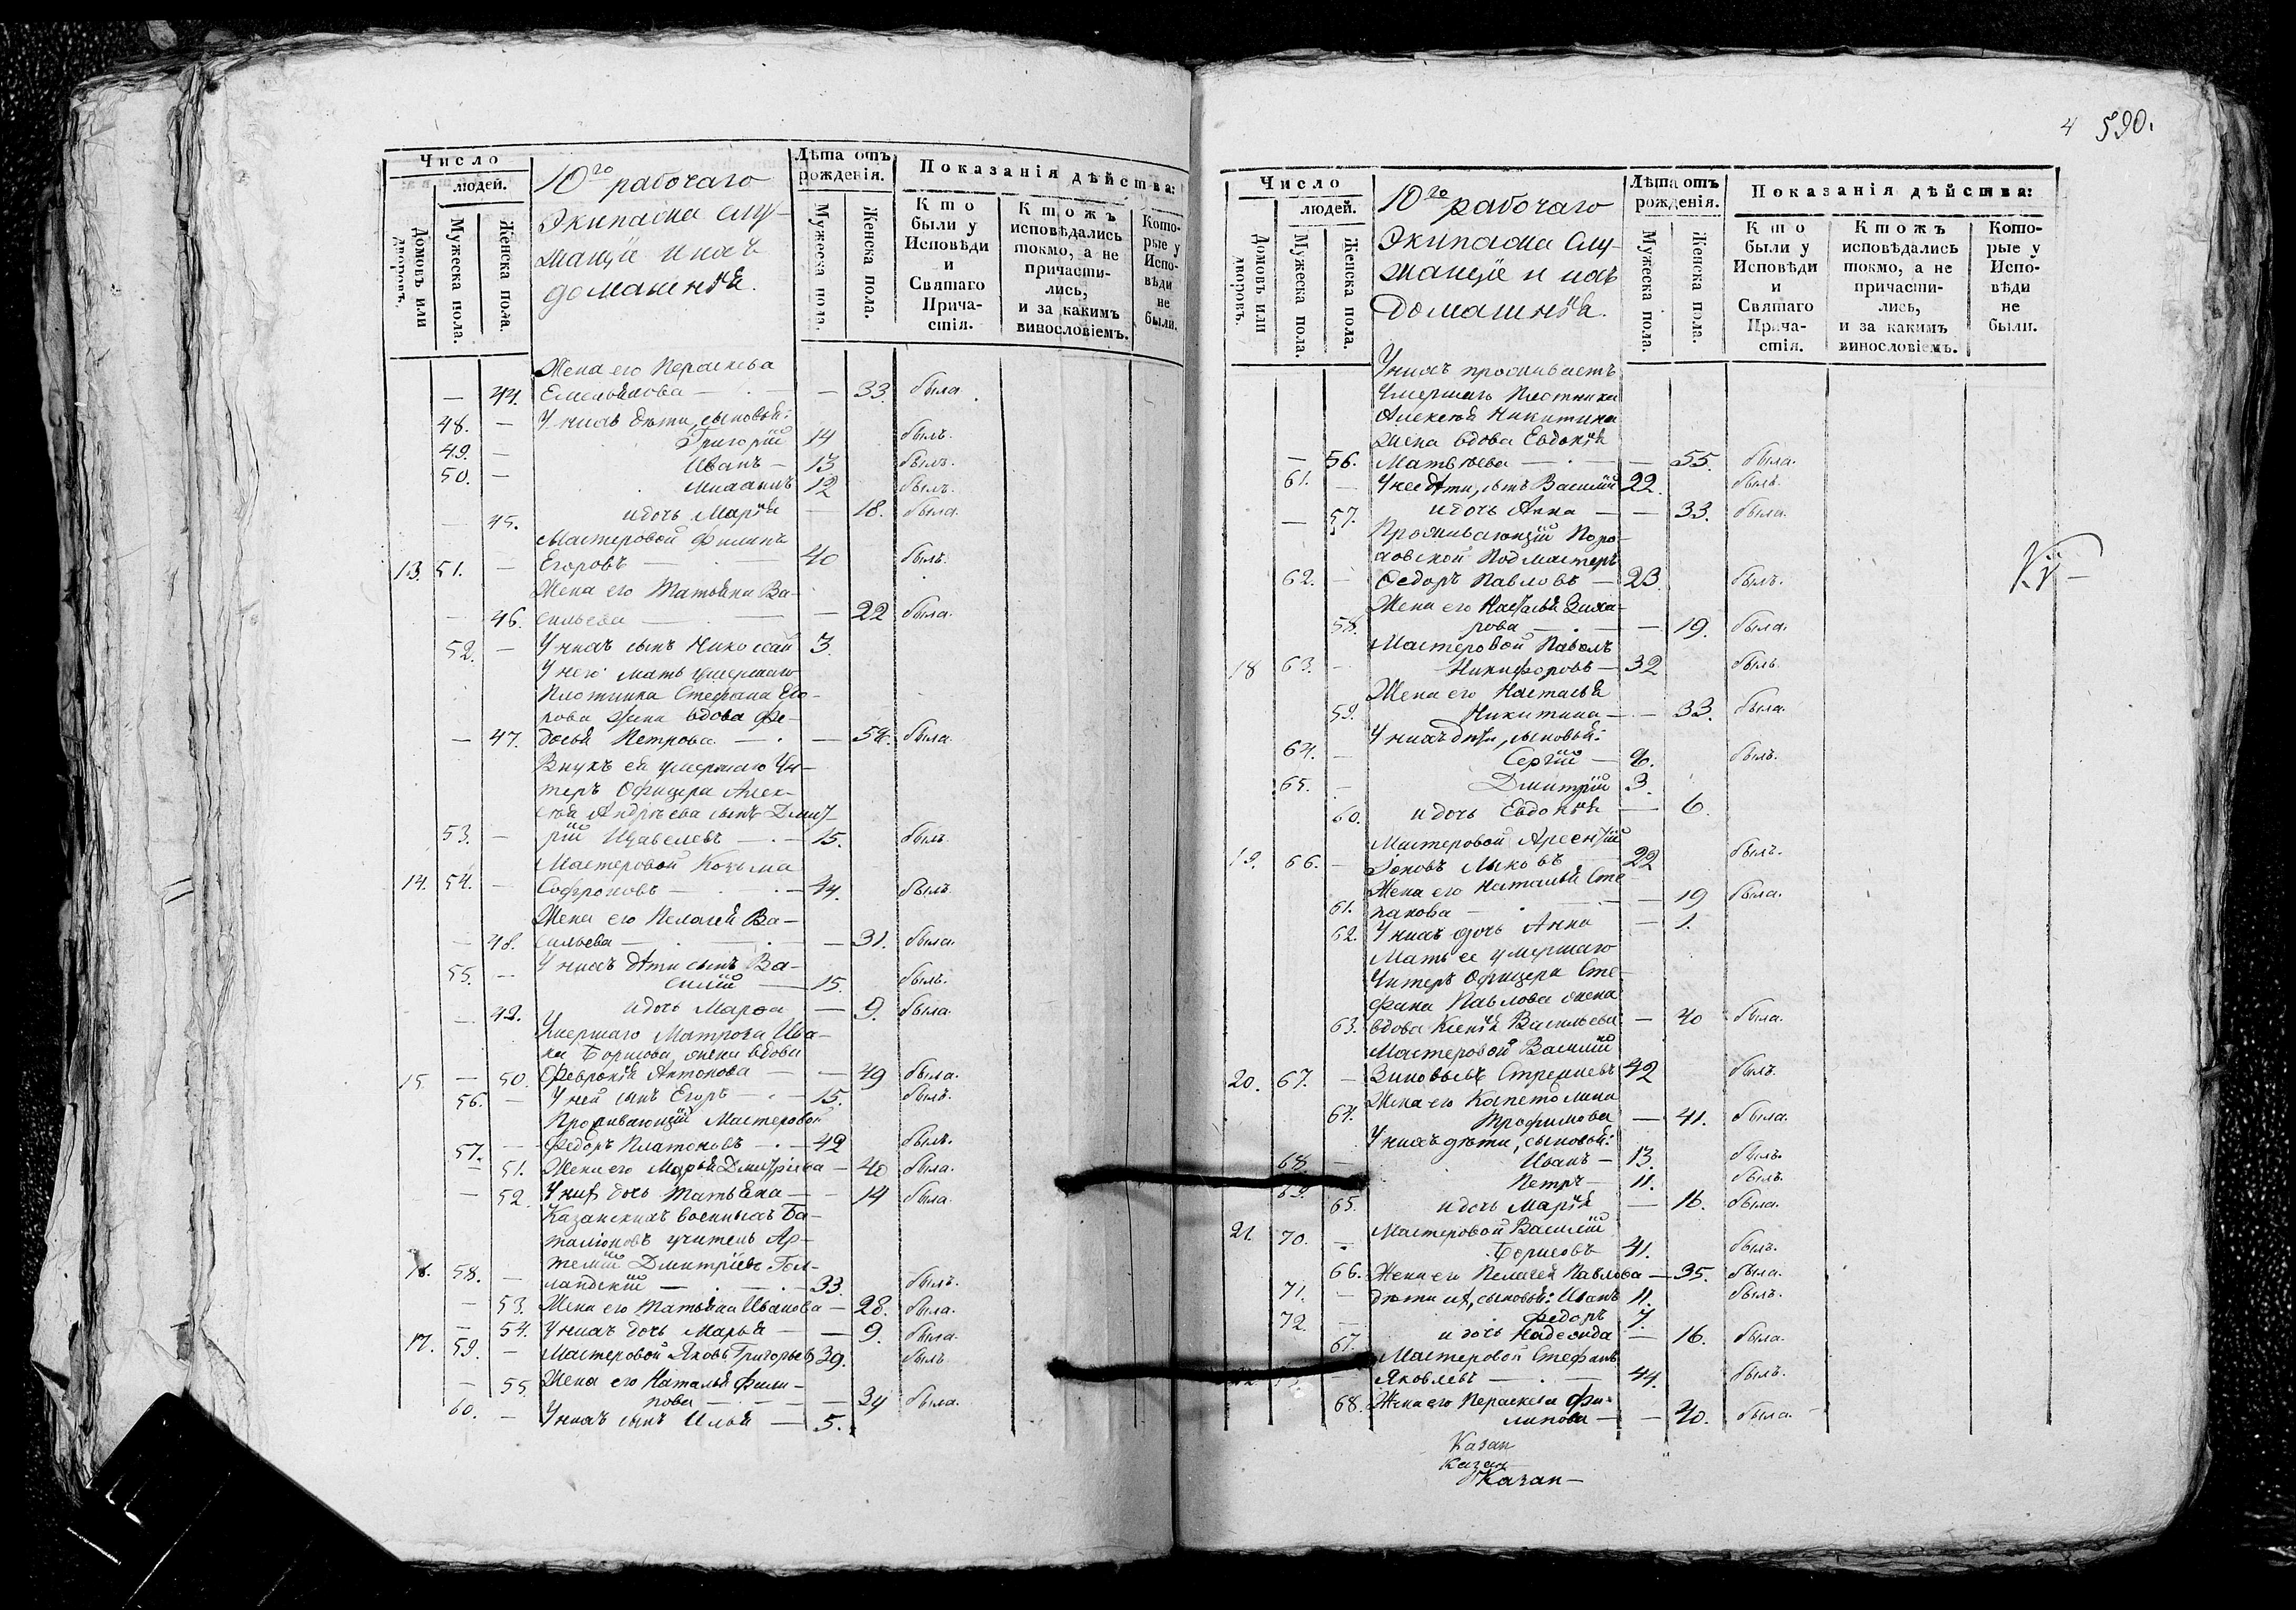 Число
людей.
Домовъ или дворовъ.
Мужеска пола.
Женска пола.
10го рабочаго
Экипажа слу-
жащіе и ихъ
домашнѣя.
Лѣта отъ
рожденія.
Мужеска пола.
Женска пола.
Показанія дѣйства:
Кто
были у
Исповѣди
и
Святаго
Прича-
стія.
Ктожъ
исповѣдались
токмо, а не
причасти-
лись,
и за какимъ
винословіемъ.
Кото-
рые у
Испо-
вѣди
не
были.
Жена его Пераскева
— 44. Емельянова — — 33. была.
48. — У нихъ дѣти, сыновья:
Григорій 14 былъ.
49. — Иванъ — 13 былъ.
50. — Михаилъ 12 былъ.
— 45. и дочь Марія — 18. была.
Мастеровой Филипъ
13. 51. — Егоровъ — 40 былъ.
Жена его Татьяна Ва-
— 46. сильева — — 22 была.
52. — У нихъ сынъ Николай 3.
У него мать умершаго
Плотника Стефана Его-
рова жена вдова Фе-
— 47. досья Петрова — — 58. была
Внукъ ея умершаго Ун-
теръ Офицера Алек-
сѣя Андрѣева сынъ Дмит-
53. — рій Щавелевъ — 15. былъ
Мастеровой Козьма
14. 54. — Софроновъ — 44. былъ.
Жена его Пелагея Ва-
— 48. сильева — — 31. была.
55. — У нихъ дѣти сынъ Ва-
силій — 15. былъ.
— 49. и дочь Марѳа — 9. была.
Умершаго Матроза Ива-
на Борисова, жена вдова
15. — 50. Февронія Антонова — — 49 была.
56. — У ней сынъ Егоръ — 15. былъ.
Проживающій Мастеровой
57. — Федоръ Платоновъ — 42 былъ.
— 51. Жена его Марья Дмитріева — 40 была.
— 52. У них дочь Татьяна — — 14 была.
Казанскихъ военныхъ Ба-
таліоновъ учитель Ар-
темій Дмитріевъ Гол-
16. 58. — ландскій — 33. былъ.
— 53. Жена его Татьяна Иванова — 28. была.
— 54. У нихъ дочь Марья — — 9. была.
17. 59. — Мастеровой Яковъ Григорьевъ 39. былъ
— 55. Жена его Наталья Фили-
пова — — 34 была.
60. — У нихъ сынъ Илья — 5.
4 590.
Число
людей.
Домовъ или дворовъ.
Мужеска пола.
Женска пола.
10го рабочаго
Экипажа Слу-
жащіе и ихъ
домашнѣя.
Лѣта отъ
рожденія.
Мужеска пола.
Женска пола.
Показанія дѣйства:
Кто
были у
Исповѣди
и
Святаго
Прича-
стія.
Ктожъ
исповѣдались
токмо, а не
причасти-
лись,
и за какимъ
винословіемъ.
Кото-
рые у
Испо-
вѣди
не
были.
У нихъ проживаетъ
Умершаго Плотника
Алексѣя Никитина
жена вдова Евдокія
— 56. Матвѣева — — 55. была.
61. — У нее дѣти, сынъ Василій 22. былъ.
— 57. и дочь Анна — — 33. была.
Проживающій Поро-
ховской Подмастеръ
62. — Федоръ Павловъ — 23. былъ.
Жена его Настасья Заха-
58. рова — — 19. была.
Мастеровой Павелъ
18 63. — Никифоровъ — 32 былъ
Жена его Настасья
59. Никитина — — 33. была.
У нихъ дѣти, сыновья:
64. — Сергій — 8. былъ.
65. — Дмитрій 3.
60. и дочь Евдокія — 6.
Мастеровой Арсентій
19. 66. — Лыковъ 22 былъ.
Жена его Наталья Сте-
61. панова — — 19 была.
62. У нихъ дочь Анна — 1.
Мать ее умершаго
Унтеръ Офицера Сте-
фана Павлова жена
63. вдова Ксенія Васильева — 40 была.
Мастеровой Василій
20. 67. — Зиновьевъ 42 былъ.
Жена его Капетолина
64. Трофимова — 41. была.
У нихъ дѣти, сыновья:
68. — Иванъ — 13. былъ.
69. Петръ — 11. былъ.
65. и дочь Марія — 16. была.
21. 70. — Мастеровой Василій
Борисовъ 41. былъ.
66. Жена его Пелагея Павлова — 35. была.
71. — дѣти их, сыновья: Иванъ 11. былъ.
72. — Федоръ 7.
67. и дочь Надежда — 16. была.
Мастеровой Стефанъ
Яковлевъ — 44. былъ.
68. Жена его Пераскева Фи-
липова — — 40. была.
Казан
Казан
Казан—